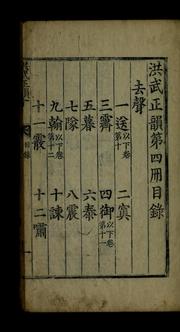 洪武正韻第四冊目錄
去聲
一送以下卷第十
二寘
三霽
四御以下卷第十一
五暮
六泰
七隊
八震
九翰以下卷第十二
十諫
十一霰
十二嘯